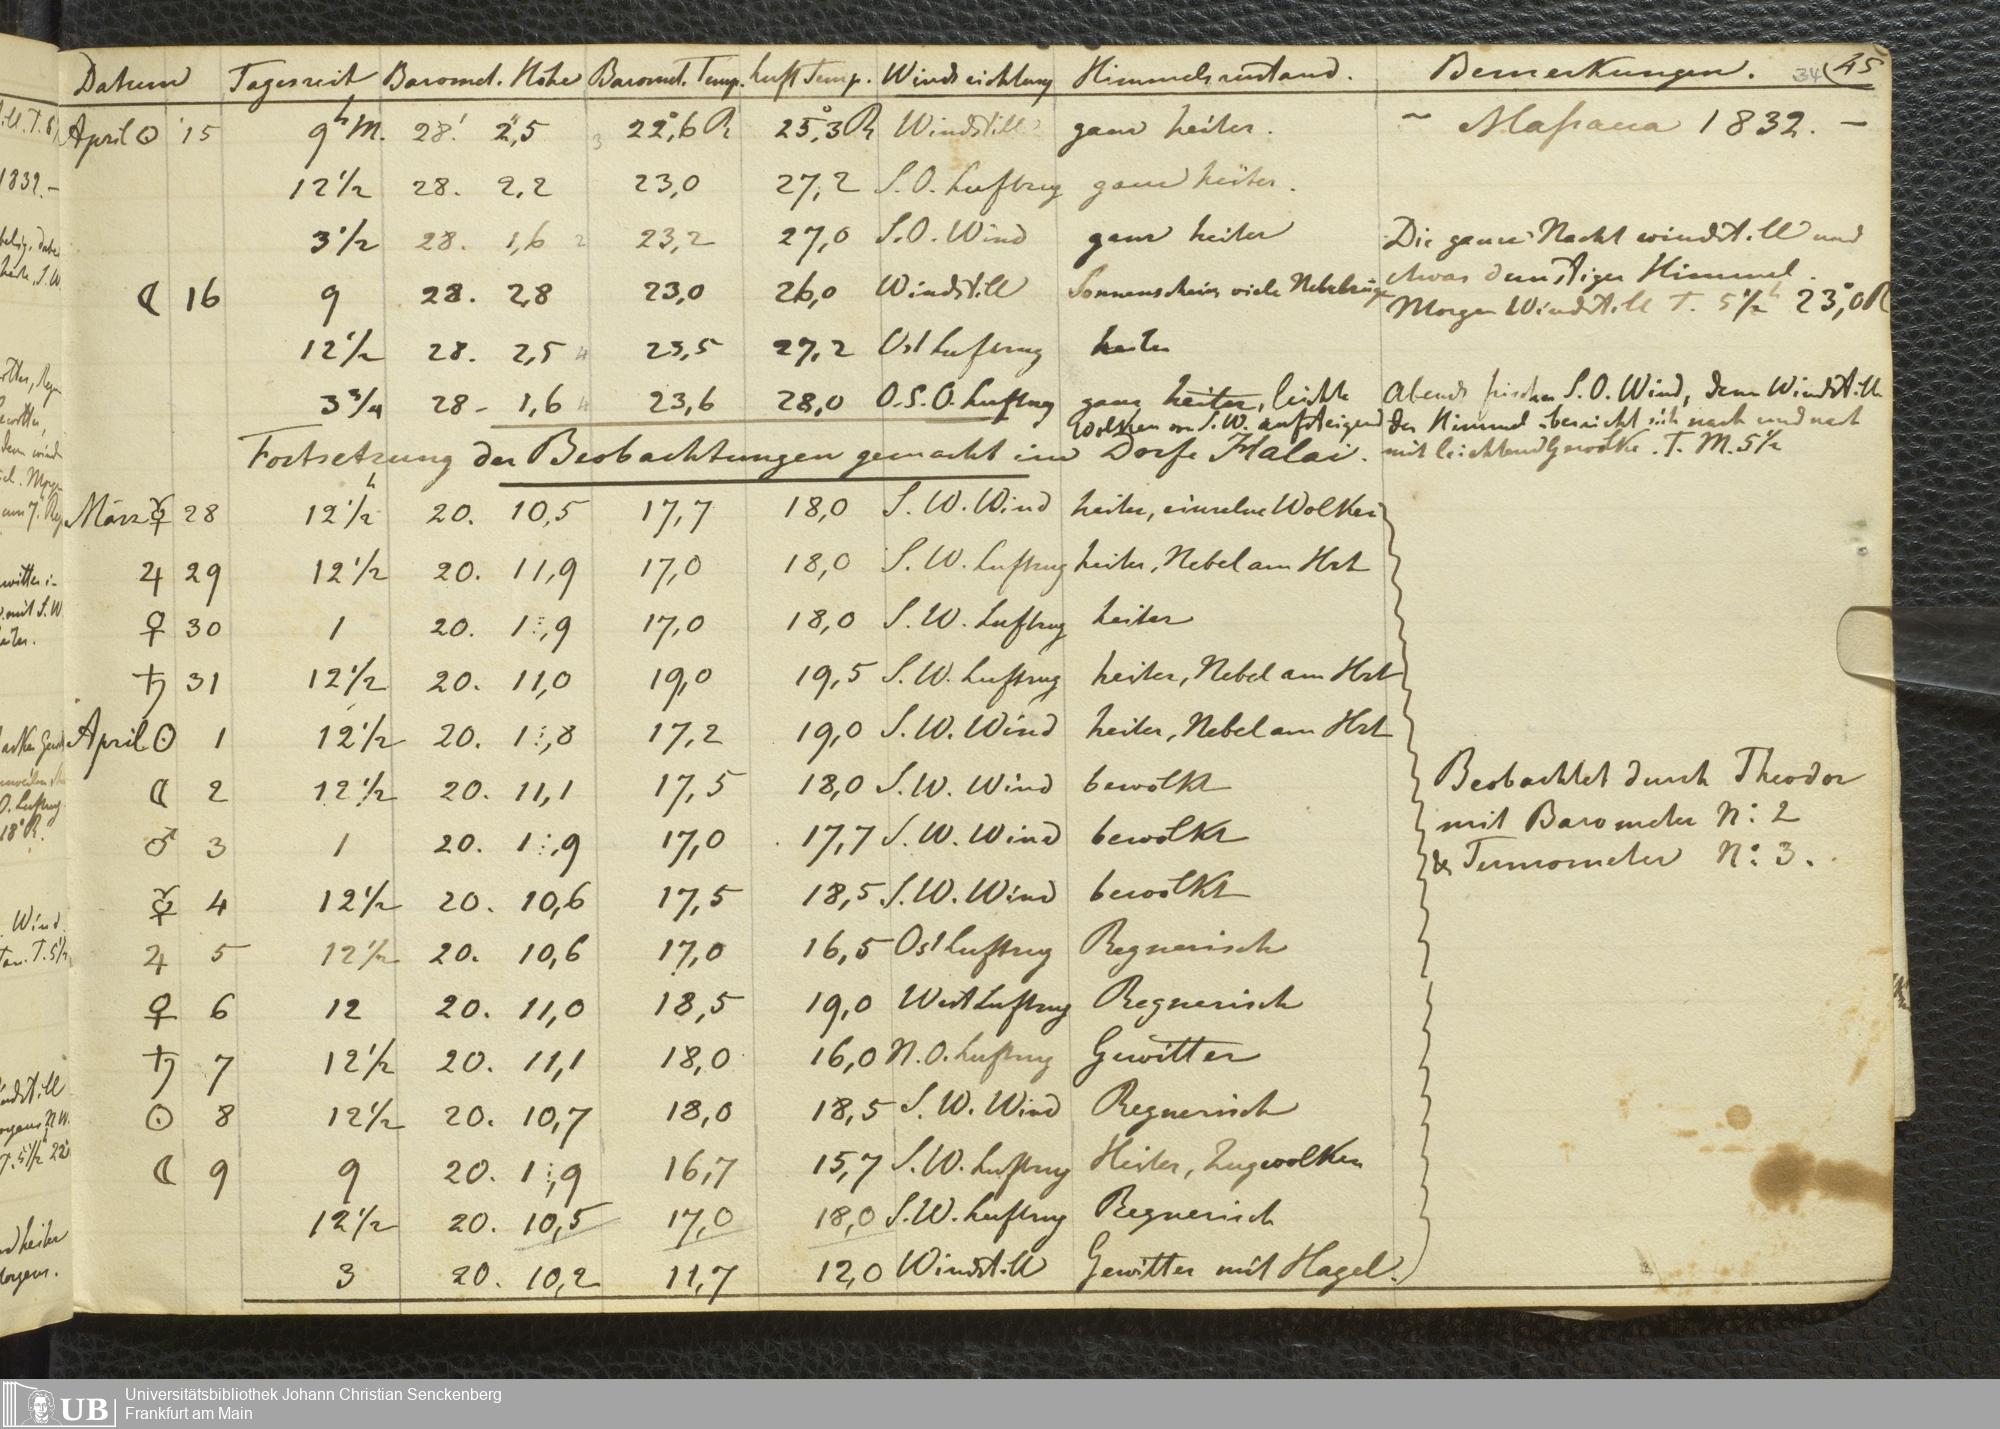 Datum Tageszeit Baromet. Höhe Baromet. Temp. Luft Temp. Windrichtung Himmelszustand. Bemerkungen. 34 45
April ☉ 15 9h M. 28' 2,"5 22,°6 R 25,°3 R Windstill ganz heiter. ~ Massaua 1832. –
12 1/2 28. 2,2 23,0 27,2 S.O. Luftzug ganz heiter.
3 1/2 28. 1,6 23,2 27,0 S.O. Wind ganz heiter Die ganze Nacht windstill und
etwas dunstiger Himmel.
☾ 16 9 28. 2,8 23,0 26,0 Windstill Sonnenschein viele Nebelzüge Morgen Windstill T. 5 1/2h 23,°0 R
12 1/2 28. 2,5 23,5 27,2 Ost Luftzug heiter
3 3/4 28 - 1,6 23,6 28,0 O.S.O. Luftzug ganz heiter, leichte Abends frischer S.O. Wind, dann Windstill
Wolken von S.W. aufsteigend der Himmel bezieht sich nach und nach
Fortsetzung der Beobachtungen gemacht im Dorfe Halai. mit leichtem Gewölke. T. M. 5 1/2
März ☿ 28 12 1/2h 20. 10,5 17,7 18,0 S.W. Wind heiter, einzelne Wolken
♃ 29 12 1/2 20. 11,9 17,0 18,0 S.W. Luftzug heiter, Nebel am Hrt
♀ 30 1 20. 1:,9 17,0 18,0 S.W. Luftzug heiter
♄ 31 12 1/2 20. 11,0 19,0 19,5 S.W. Luftzug heiter, Nebel am Hrt
April ☉ 1 12 1/2 20. 1:,8 17,2 19,0 S.W. Wind heiter, Nebel am Hrt
☾ 2 12 1/2 20. 11,1 17,5 18,0 S.W. Wind bewölkt Beobachtet durch Theodor
♂ 3 1 20. 1:,9 17,0 17,7 S.W. Wind bewölkt mit Barometer N: 2
& Termometer N: 3.
☿ 4 12 1/2 20. 10,6 17,5 18,5 S.W. Wind bewölkt
♃ 5 12 1/2 20. 10,6 17,0 16,5 Ost Luftzug Regnerisch
♀ 6 12 20. 11,0 18,5 19,0 West Luftzug Regnerisch
♄ 7 12 1/2 20. 11,1 18,0 16,0 N.O. Luftzug Gewitter
☉ 8 12 1/2 20. 10,7 18,0 18,5 S.W. Wind Regnerisch
☾ 9 9 20. 1:,9 16,7 15,7 S.W. Luftzug Heiter, Zugwolken
12 1/2 20. 10,5 17,0 18,0 S.W. Luftzug Regnerisch
3 20. 10,2 11,7 12,0 Windstill Gewitter mit Hagel.
UB Universitätsbibliothek Johann Christian Senckenberg
Frankfurt am Main